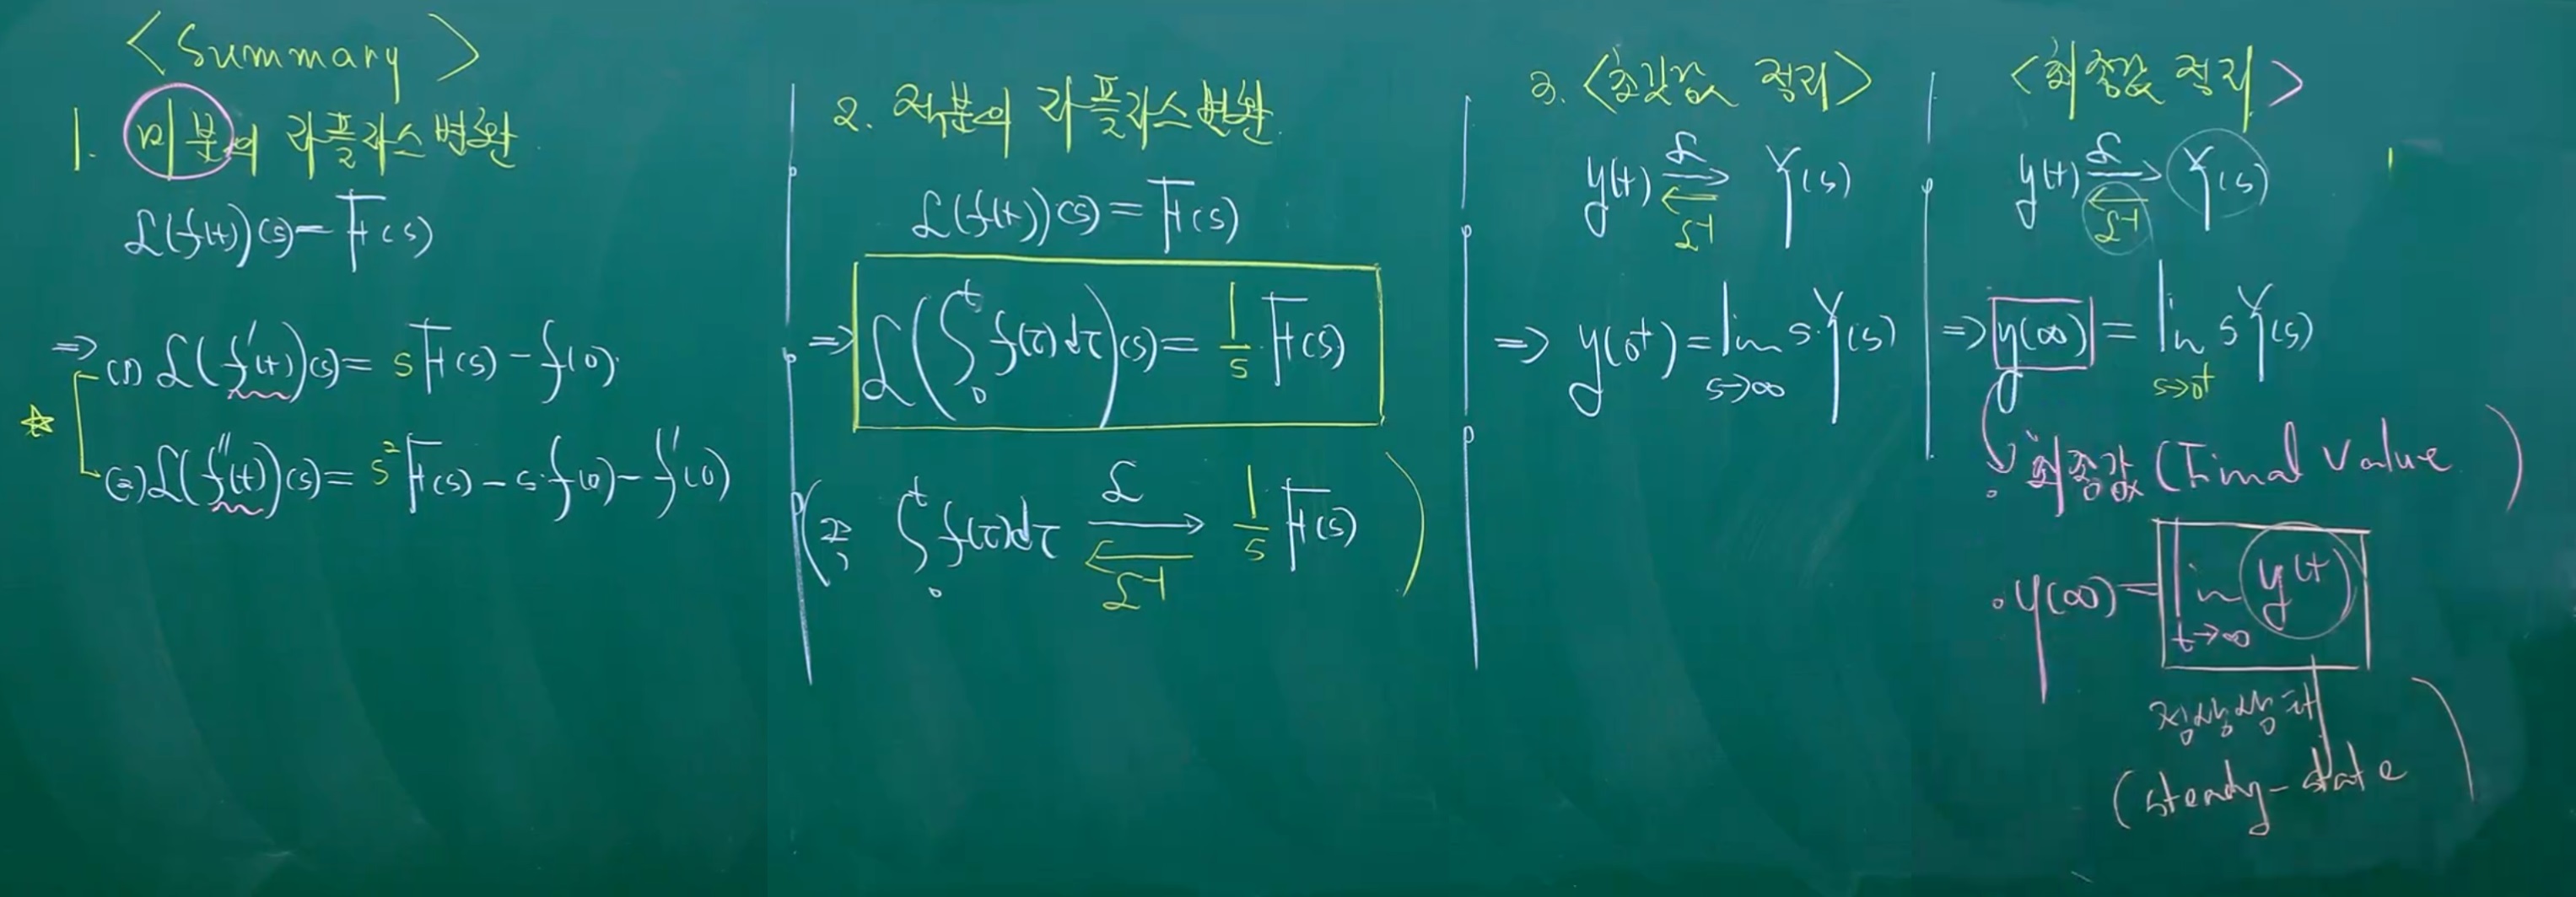 <Summary>
1. 미분의 라플라스 변환
ℒ(f(t))(s) = F(s)
⇒ (1) ℒ(f'(t))(s) = sF(s) - f(0)
☆ (2) ℒ(f''(t))(s) = s²F(s) - s·f(0) - f'(0)
2. 적분의 라플라스 변환
ℒ(f(t))(s) = F(s)
⇒ ℒ(∫₀ᵗ f(τ)dτ)(s) = 1/s · F(s)
(즉, ∫₀ᵗ f(τ)dτ ⇄ 1/s F(s)) ℒ ℒ⁻¹
3. <초기값 정리>
y(t) ⇄ Y(s) ℒ ℒ⁻¹
⇒ y(0⁺) = lim s·Y(s)
s→∞
<최종값 정리>
y(t) ⇄ Y(s) ℒ ℒ⁻¹
⇒ y(∞) = lim sY(s)
s→0⁺
· 최종값 (Final Value)
· y(∞) = lim y(t)
t→∞
정상상태
(steady-state)